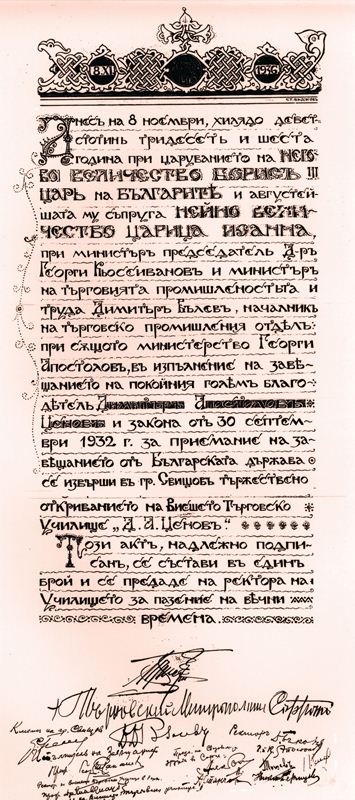 8.XI 1936
Днесь на 8 ноември, хилядо девет-
стотинь тридесеть и шеста
година при царуванието на НЕГО-
ВО ВЕЛИЧЕСТВО БОРИСЪ III
ЦАРЬ на БЪЛГАРИТѢ и августей-
шата му съпруга НЕЙНО ВЕЛИ-
ЧЕСТВО ЦАРИЦА ИОАННА,
при министъръ председатель Д-ръ
Георги Кьосеивановъ и министъръ
на търговията промишленостьта и
труда Димитъръ Вълевъ, началникъ
на търговско промишления отдѣлъ
при сѫщото министерство Георги
Апостоловъ, въ изпълнение на завѣ-
щанието на покойния големъ благо-
дѣтель Димитъръ Апостоловъ
Ценовъ и закона отъ 30 септем-
ври 1932 г. за приемание на за-
вѣщанието отъ Българската държава
се извърши въ гр. Свищовъ тържествено
откриванието на Висшето Търговско
Училище „Д. А. Ценовъ“
Този актъ, надлежно подпи-
санъ, се състави въ единъ
брой и се предаде на ректора на
Училището за пазение на вѣчни
времена.
+ Търновский Митрополитъ Софроний